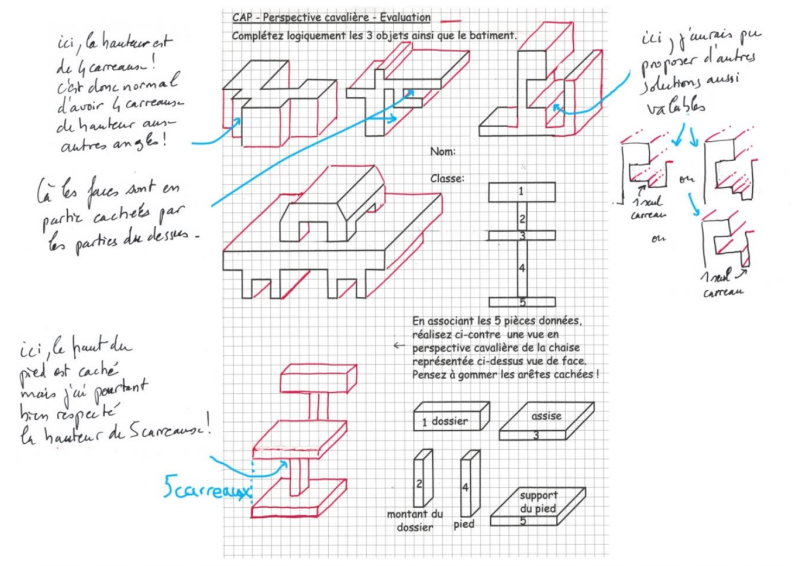 CAP - Perspective cavalière - Évaluation
Complétez logiquement les 3 objets ainsi que le batiment.
ici, la hauteur est
de 4 carreaux !
c'est donc normal
d'avoir 4 carreaux
de hauteur aux
autres angles !
Là les faces sont en
partie cachées par
les parties du dessus.
ici, j'aurais pu
proposer d'autres
solutions aussi
valables
ou
1 seul
carreau
ou
1 seul
carreau
Nom:
Classe:
1
2
3
4
5
En associant les 5 pièces données,
réalisez ci-contre une vue en
perspective cavalière de la chaise
représentée ci-dessus vue de face.
Pensez à gommer les arêtes cachées !
ici, le haut du
pied est caché
mais j'ai pourtant
bien respecté
la hauteur de 5 carreaux !
5 carreaux
1 dossier
assise
3
2
montant du
dossier
4
pied
support
du pied
5